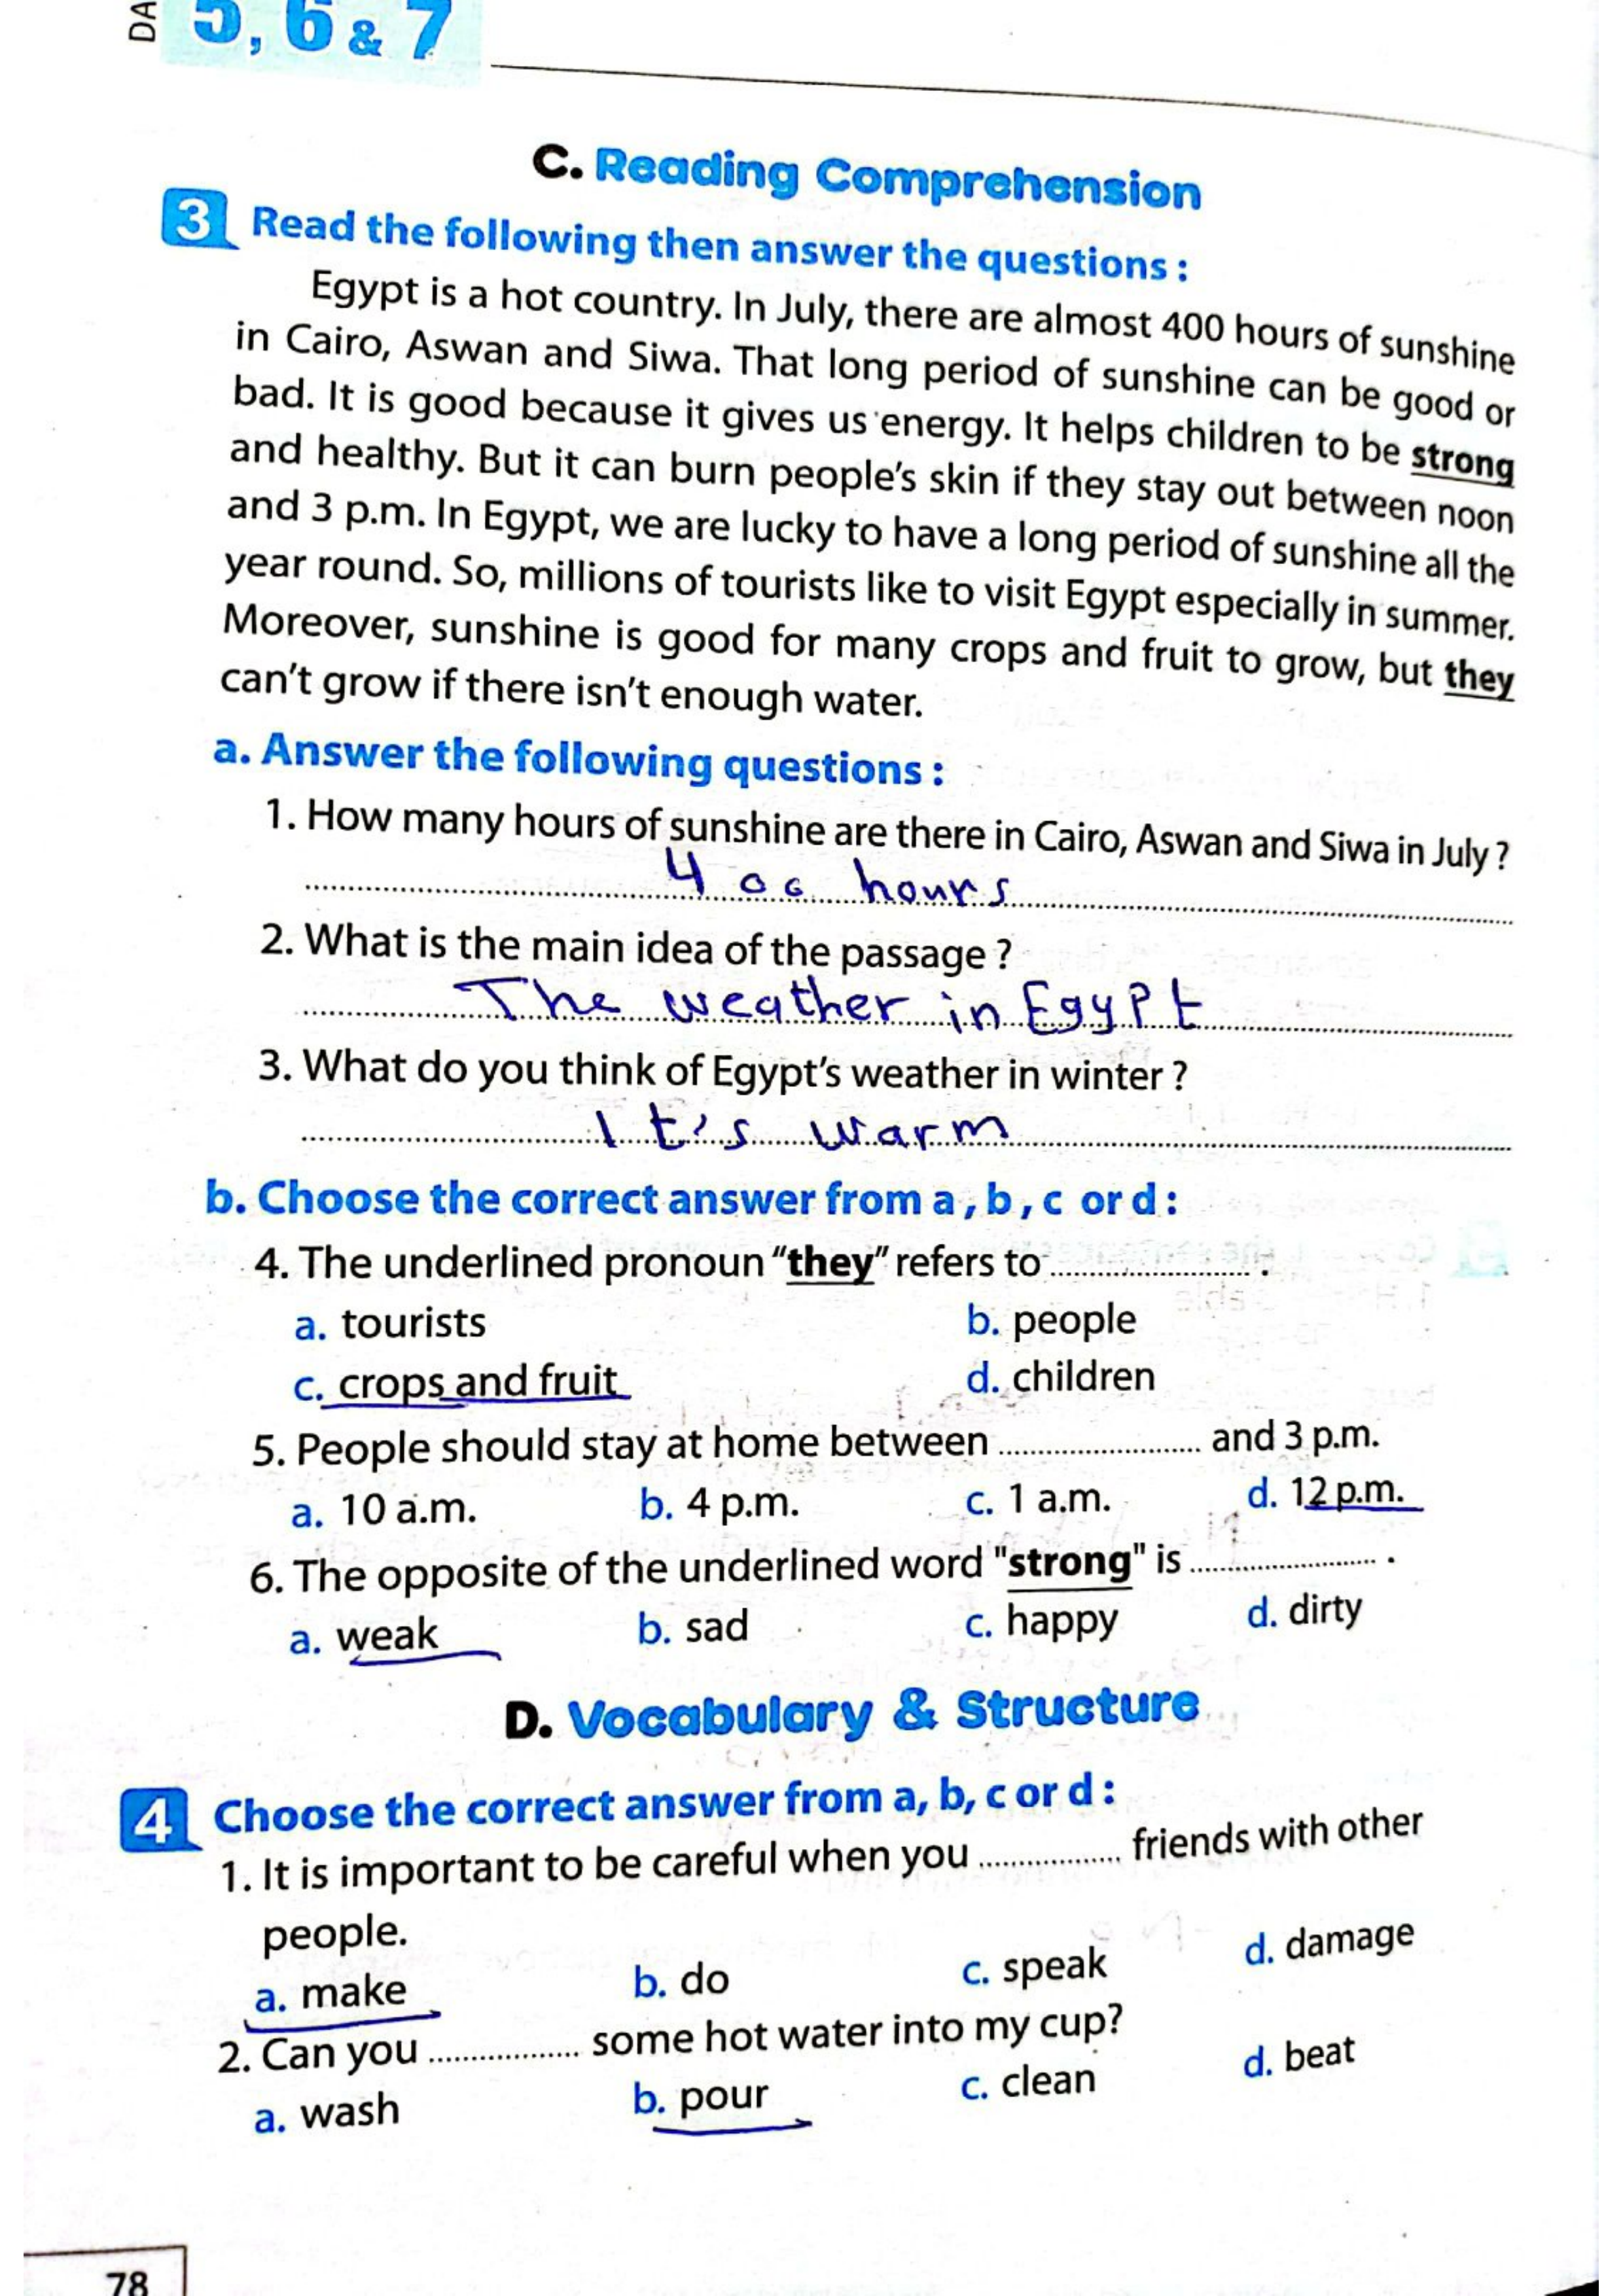 DA 5, 6 & 7
C. Reading Comprehension
3 Read the following then answer the questions :
Egypt is a hot country. In July, there are almost 400 hours of sunshine
in Cairo, Aswan and Siwa. That long period of sunshine can be good or
bad. It is good because it gives us energy. It helps children to be strong
and healthy. But it can burn people's skin if they stay out between noon
and 3 p.m. In Egypt, we are lucky to have a long period of sunshine all the
year round. So, millions of tourists like to visit Egypt especially in summer.
Moreover, sunshine is good for many crops and fruit to grow, but they
can't grow if there isn't enough water.
a. Answer the following questions :
1. How many hours of sunshine are there in Cairo, Aswan and Siwa in July ?
400 hours
2. What is the main idea of the passage ?
The weather in Egypt
3. What do you think of Egypt's weather in winter ?
It's warm
b. Choose the correct answer from a , b , c or d :
4. The underlined pronoun "they" refers to .................... .
a. tourists b. people
c. crops and fruit d. children
5. People should stay at home between .................... and 3 p.m.
a. 10 a.m. b. 4 p.m. c. 1 a.m. d. 12 p.m.
6. The opposite of the underlined word "strong" is .................... .
a. weak b. sad c. happy d. dirty
D. Vocabulary & Structure
4 Choose the correct answer from a, b, c or d :
1. It is important to be careful when you ............... friends with other
people.
a. make b. do c. speak d. damage
2. Can you ................ some hot water into my cup?
a. wash b. pour c. clean d. beat
78